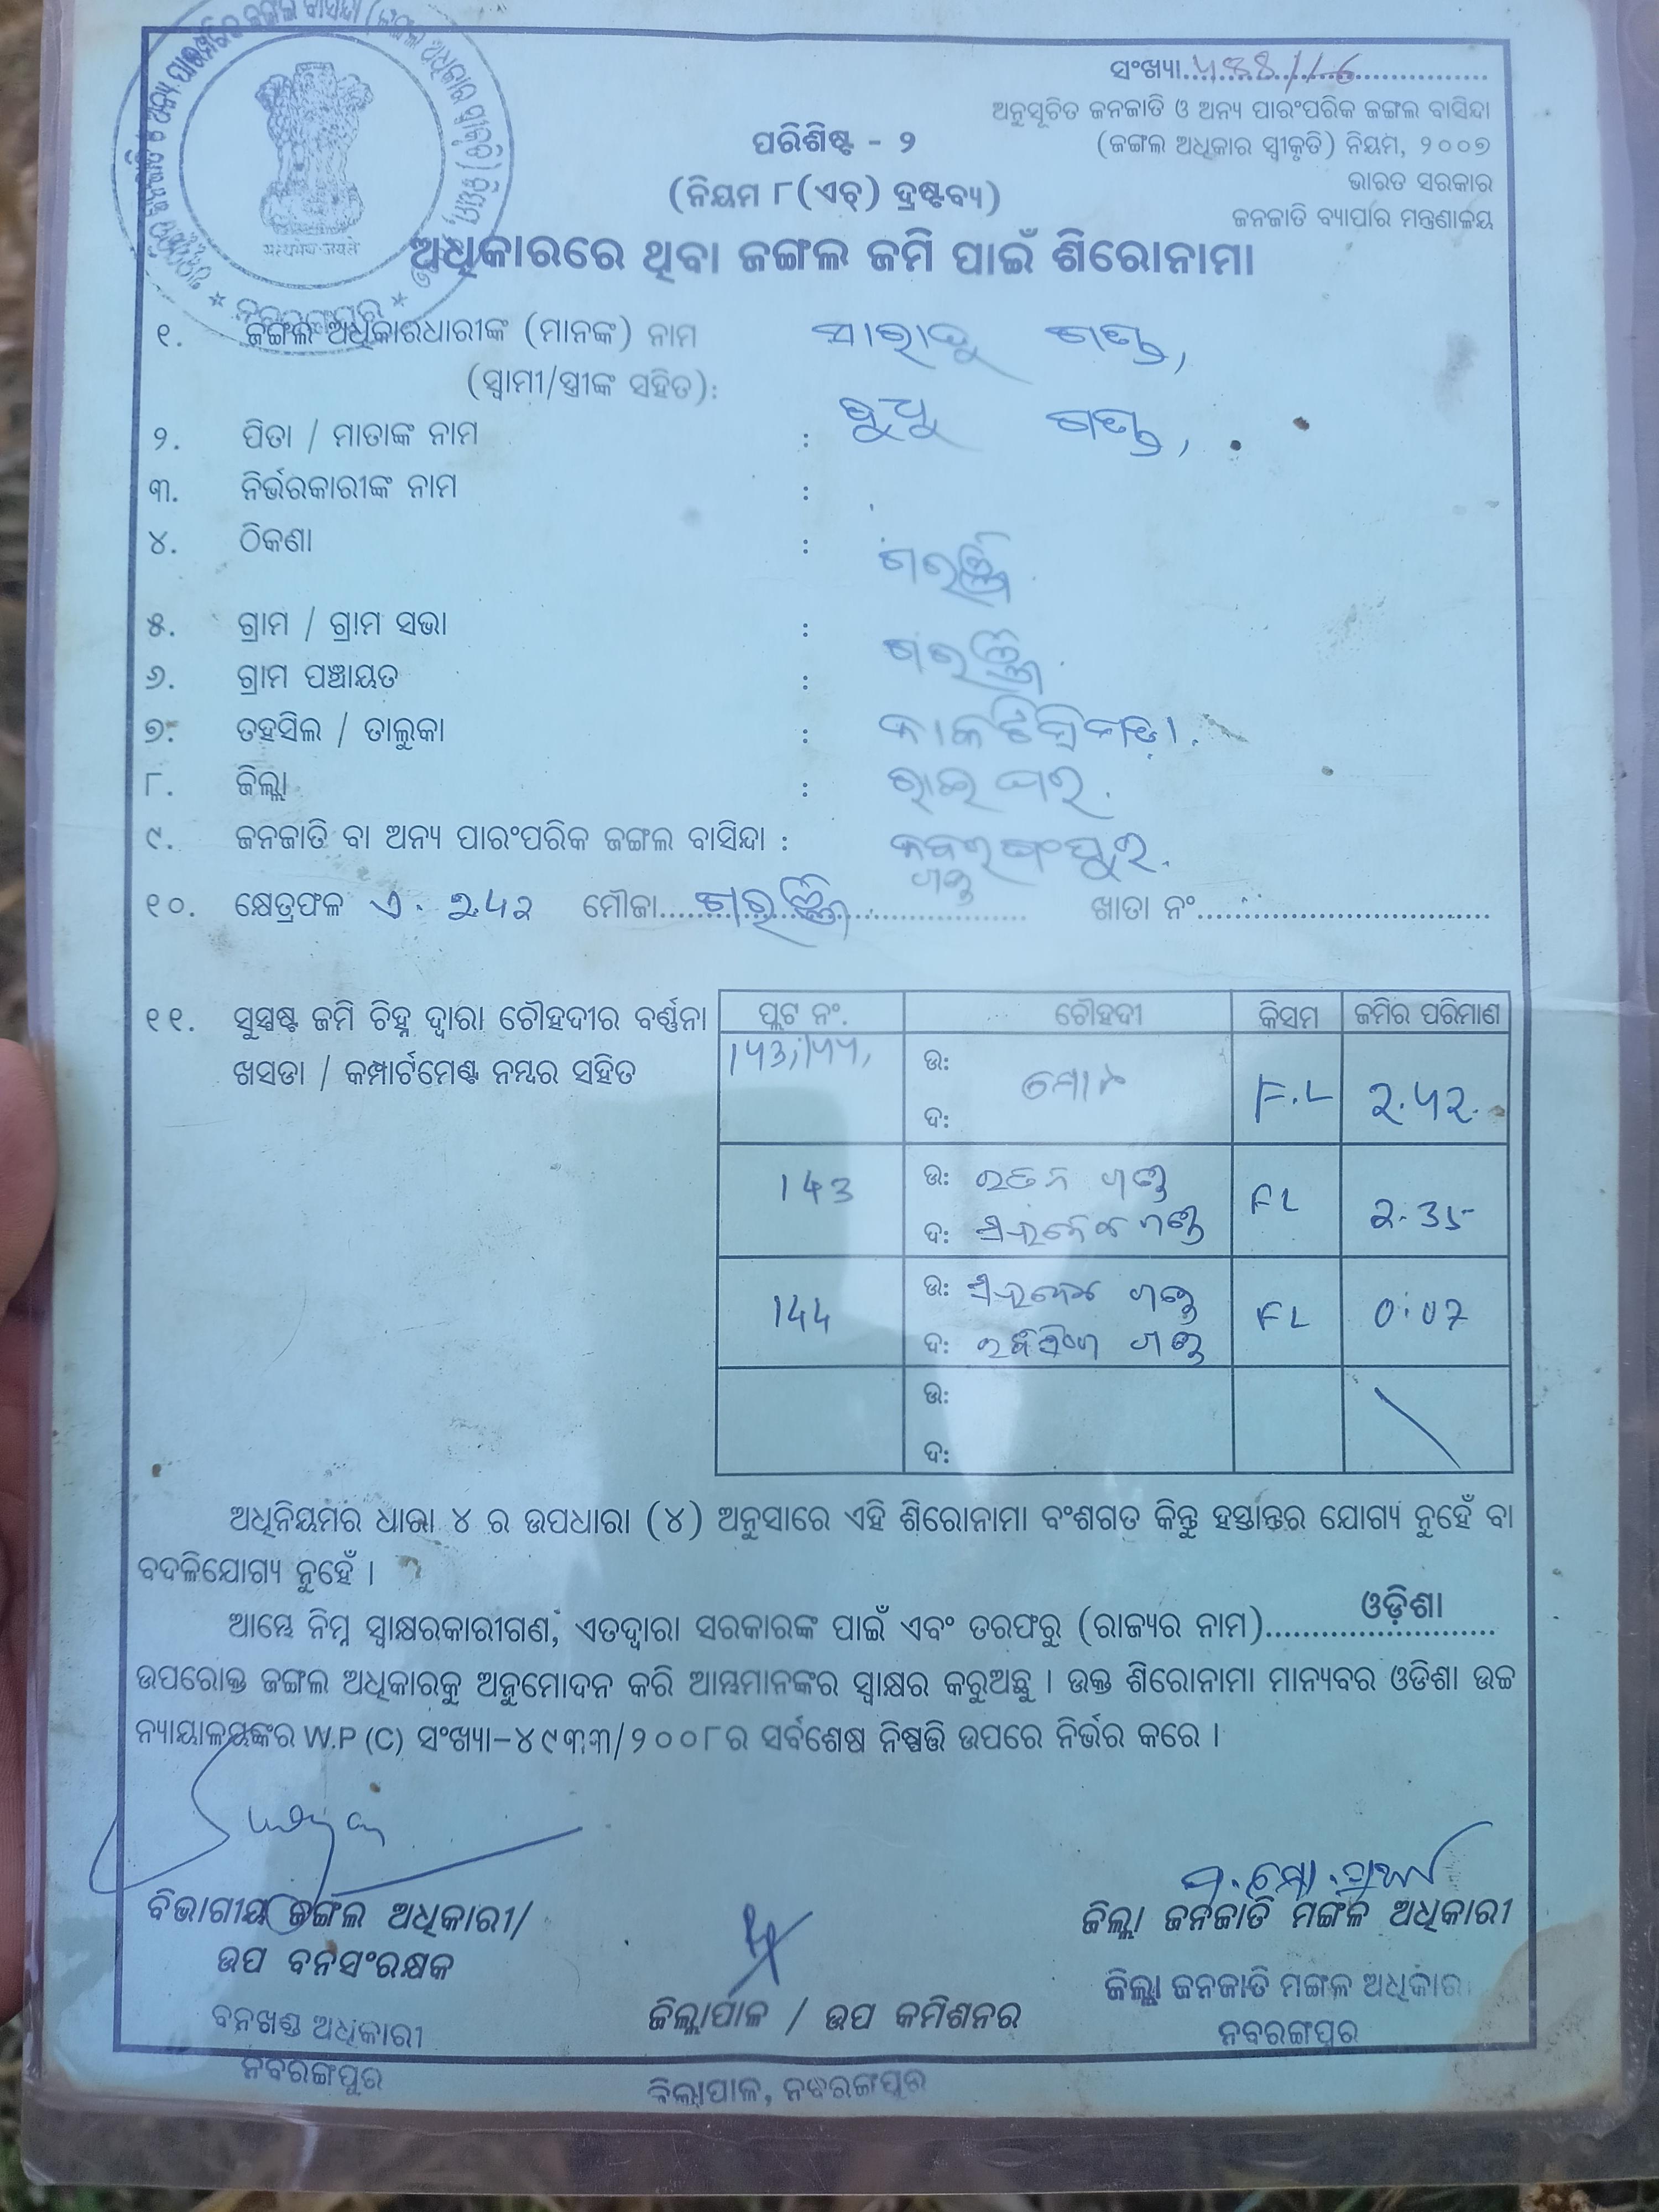 ସଂଖ୍ୟା
ଅନୁସୂଚିତ ଜନଜାତି ଓ ଅନ୍ୟ ପାରଂପରିକ ଜଙ୍ଗଲ ବାସିନ୍ଦା
(ଜଙ୍ଗଲ ଅଧିକାର ସ୍ୱୀକୃତି) ନିୟମ, ୨୦୦୭
ଭାରତ ସରକାର
ଜନଜାତି ବ୍ୟାପାର ମନ୍ତ୍ରଣାଳୟ
ପରିଶିଷ୍ଟ - ୨
(ନିୟମ ୮(ଏଚ୍) ଦ୍ରଷ୍ଟବ୍ୟ)
ଅଧିକାରରେ ଥିବା ଜଙ୍ଗଲ ଜମି ପାଇଁ ଶିରୋନାମା
सत्यमेव जयते
ନବରଙ୍ଗପୁର
୧. ଜଙ୍ଗଲ ଅଧିକାରଧାରୀଙ୍କ (ମାନଙ୍କ) ନାମ
(ସ୍ୱାମୀ/ସ୍ତ୍ରୀଙ୍କ ସହିତ):
୨. ପିତା / ମାତାଙ୍କ ନାମ : ବୁଧୁ ଗଣ୍ଡ,
୩. ନିର୍ଭରକାରୀଙ୍କ ନାମ :
୪. ଠିକଣା :
୫. ଗ୍ରାମ / ଗ୍ରାମ ସଭା :
୬. ଗ୍ରାମ ପଞ୍ଚାୟତ :
୭. ତହସିଲ / ତାଲୁକା :
୮. ଜିଲ୍ଲା : ରାଇଘର.
୯. ଜନଜାତି ବା ଅନ୍ୟ ପାରଂପରିକ ଜଙ୍ଗଲ ବାସିନ୍ଦା : ନବରଙ୍ଗପୁର.
ଗଣ୍ଡ
୧୦. କ୍ଷେତ୍ରଫଳ ଏ. ୨.୪୨ ମୌଜା ଖାତା ନଂ
୧୧. ସୁସ୍ପଷ୍ଟ ଜମି ଚିହ୍ନ ଦ୍ୱାରା ଚୌହଦୀର ବର୍ଣ୍ଣନା
ଖସଡା / କମ୍ପାର୍ଟମେଣ୍ଟ ନମ୍ବର ସହିତ
ପ୍ଲଟ ନଂ. ଚୌହଦୀ କିସମ ଜମିର ପରିମାଣ
ଉ:
ଦ: F.L ୨.୪୨
143 ଉ: ଗଣ୍ଡ
ଦ: ଗଣ୍ଡ FL 2.35
144 ଉ: ଗଣ୍ଡ
ଦ: ଗଣ୍ଡ FL 0.07
ଉ:
ଦ:
ଅଧିନିୟମର ଧାରା ୪ ର ଉପଧାରା (୪) ଅନୁସାରେ ଏହି ଶିରୋନାମା ବଂଶଗତ କିନ୍ତୁ ହସ୍ତାନ୍ତର ଯୋଗ୍ୟ ନୁହେଁ ବା
ବଦଳିଯୋଗ୍ୟ ନୁହେଁ ।
ଆମ୍ଭେ ନିମ୍ନ ସ୍ୱାକ୍ଷରକାରୀଗଣ, ଏତଦ୍ୱାରା ସରକାରଙ୍କ ପାଇଁ ଏବଂ ତରଫରୁ (ରାଜ୍ୟର ନାମ) ଓଡ଼ିଶା
ଉପରୋକ୍ତ ଜଙ୍ଗଲ ଅଧିକାରକୁ ଅନୁମୋଦନ କରି ଆମ୍ଭମାନଙ୍କର ସ୍ୱାକ୍ଷର କରୁଅଛୁ । ଉକ୍ତ ଶିରୋନାମା ମାନ୍ୟବର ଓଡିଶା ଉଚ୍ଚ
ନ୍ୟାୟାଳୟଙ୍କର W.P (C) ସଂଖ୍ୟା-୪୯୩୩/୨୦୦୮ର ସର୍ବଶେଷ ନିଷ୍ପତ୍ତି ଉପରେ ନିର୍ଭର କରେ ।
ବିଭାଗୀୟ ଜଙ୍ଗଲ ଅଧିକାରୀ/
ଉପ ବନସଂରକ୍ଷକ
ବନଖଣ୍ଡ ଅଧିକାରୀ
ନବରଙ୍ଗପୁର
ଜିଲ୍ଲାପାଳ / ଉପ କମିଶନର
ଜିଲ୍ଲାପାଳ, ନବରଙ୍ଗପୁର
ଜିଲ୍ଲା ଜନଜାତି ମଙ୍ଗଳ ଅଧିକାରୀ
ଜିଲ୍ଲା ଜନଜାତି ମଙ୍ଗଳ ଅଧିକାରୀ
ନବରଙ୍ଗପୁର